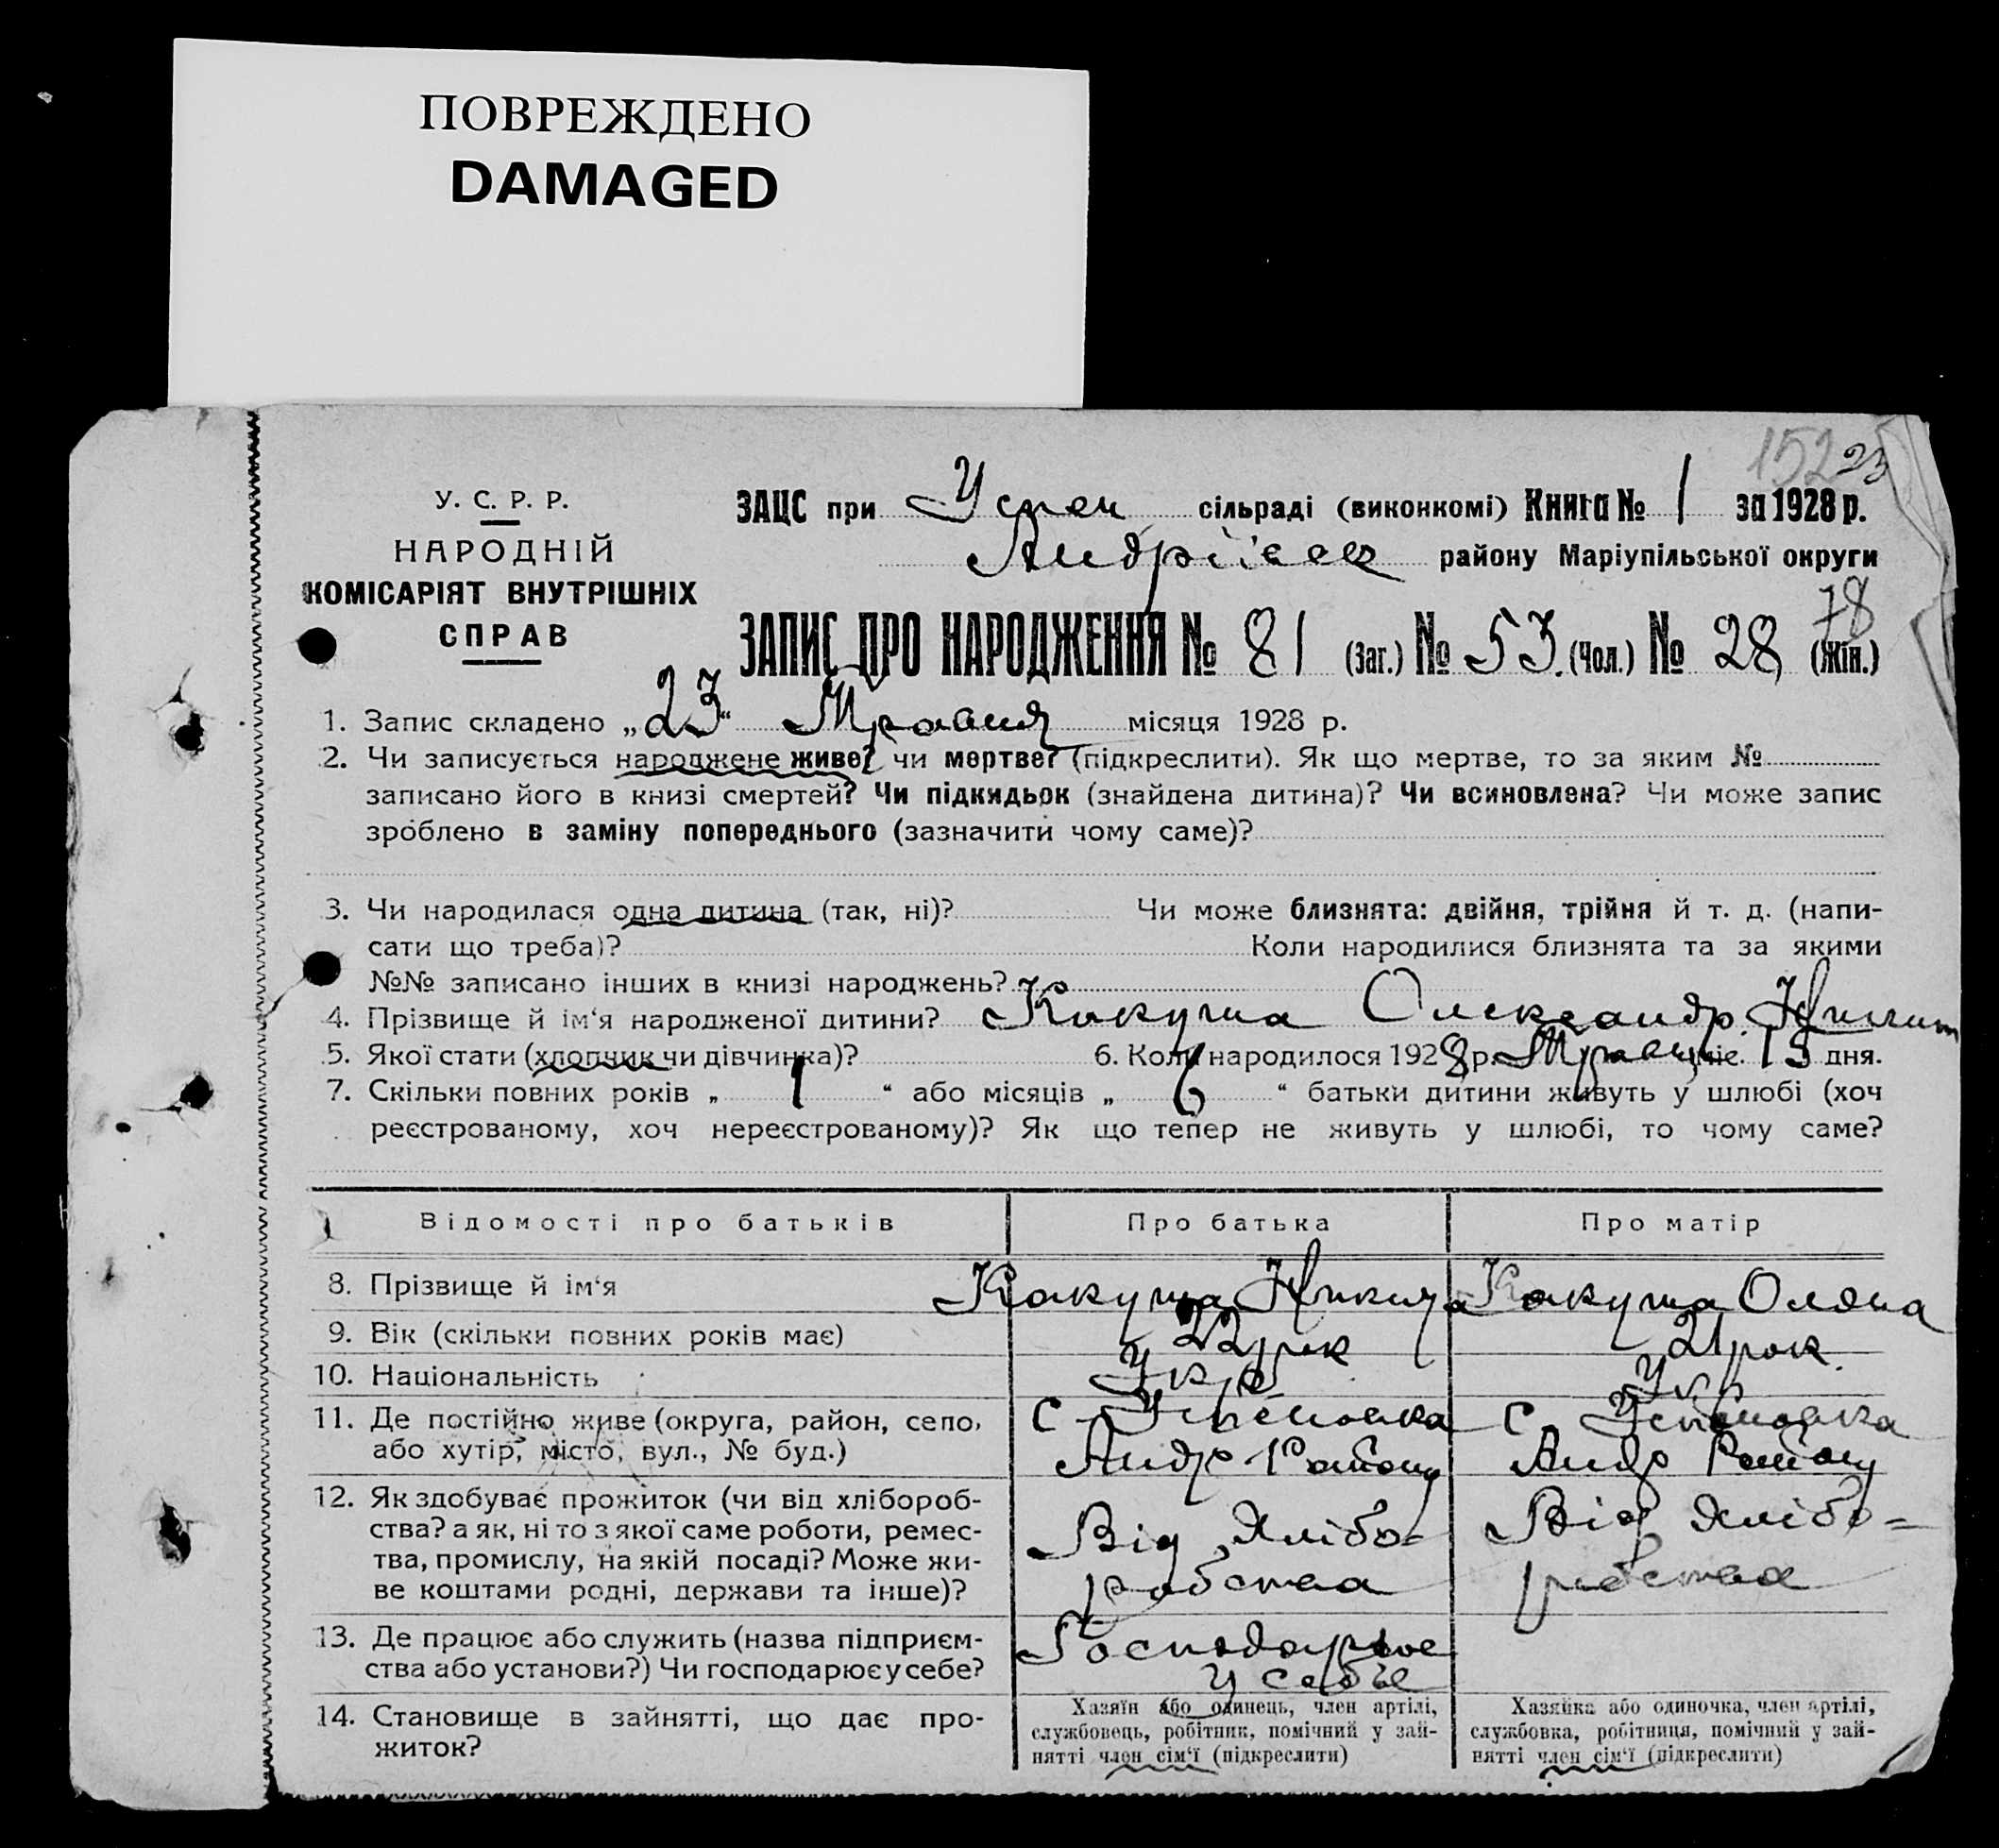 ПОВРЕЖДЕНО
DAMAGED
152 23
У. С. Р. Р.
НАРОДНІЙ
КОМІСАРІЯТ ВНУТРІШНІХ
СПРАВ
ЗАЦС при Успен сільраді (виконкомі) Книга № 1 за 1928 р.
Андріївск району Маріупільської округи
78
ЗАПИС ПРО НАРОДЖЕННЯ № 81 (Заг.) № 53. (Чол.) № 28 (Жін.)
1. Запис складено „23“ Травня місяця 1928 р.
2. Чи записується народжене живе? чи мертве? (підкреслити). Як що мертве, то за яким №
записано його в книзі смертей? Чи підкидьок (знайдена дитина)? Чи всиновлена? Чи може запис
зроблено в заміну попереднього (зазначити чому саме)?
3. Чи народилася одна дитина (так, ні)? Чи може близнята: двійня, трійня й т. д. (напи-
сати що треба)? Коли народилися близнята та за якими
№№ записано інших в книзі народжень?
4. Прізвище й ім‘я народженої дитини? Какуша Олександр.
5. Якої стати (хлопчик чи дівчинка)? 6. Коли народилося 1928 р. Травня міс. 13 дня.
7. Скільки повних років „ 1 “ або місяців „ 6 “ батьки дитини живуть у шлюбі (хоч
реєстрованому, хоч нереєстрованому)? Як що тепер не живуть у шлюбі, то чому саме?
Відомості про батьків Про батька Про матір
8. Прізвище й ім‘я Какуша Никита Какуша Оляна
9. Вік (скільки повних років має) 22 рок 21 рок.
10. Національність Укр Укр
11. Де постійно живе (округа, район, село, с. Успеновка с. Успеновка
або хутір, місто, вул., № буд.) Андр Району Андр Району
12. Як здобуває прожиток (чи від хлібороб-
ства? а як, ні то з якої саме роботи, ремес- Від хлібо- Від хлібо=
тва, промислу, на якій посаді? Може жи-
ве коштами родні, держави та інше)? робства робства
13. Де працює або служить (назва підприєм- Господарює
ства або установи?) Чи господарює у себе? у себье
14. Становище в зайнятті, що дає про-
житок?
Хазяїн або одинець, член артілі,
службовець, робітник, помічний у зай-
нятті член сім‘ї (підкреслити)
Хазяйка або одиночка, член артілі,
службовка, робітниця, помічний у зай-
нятті член сім‘ї (підкреслити)